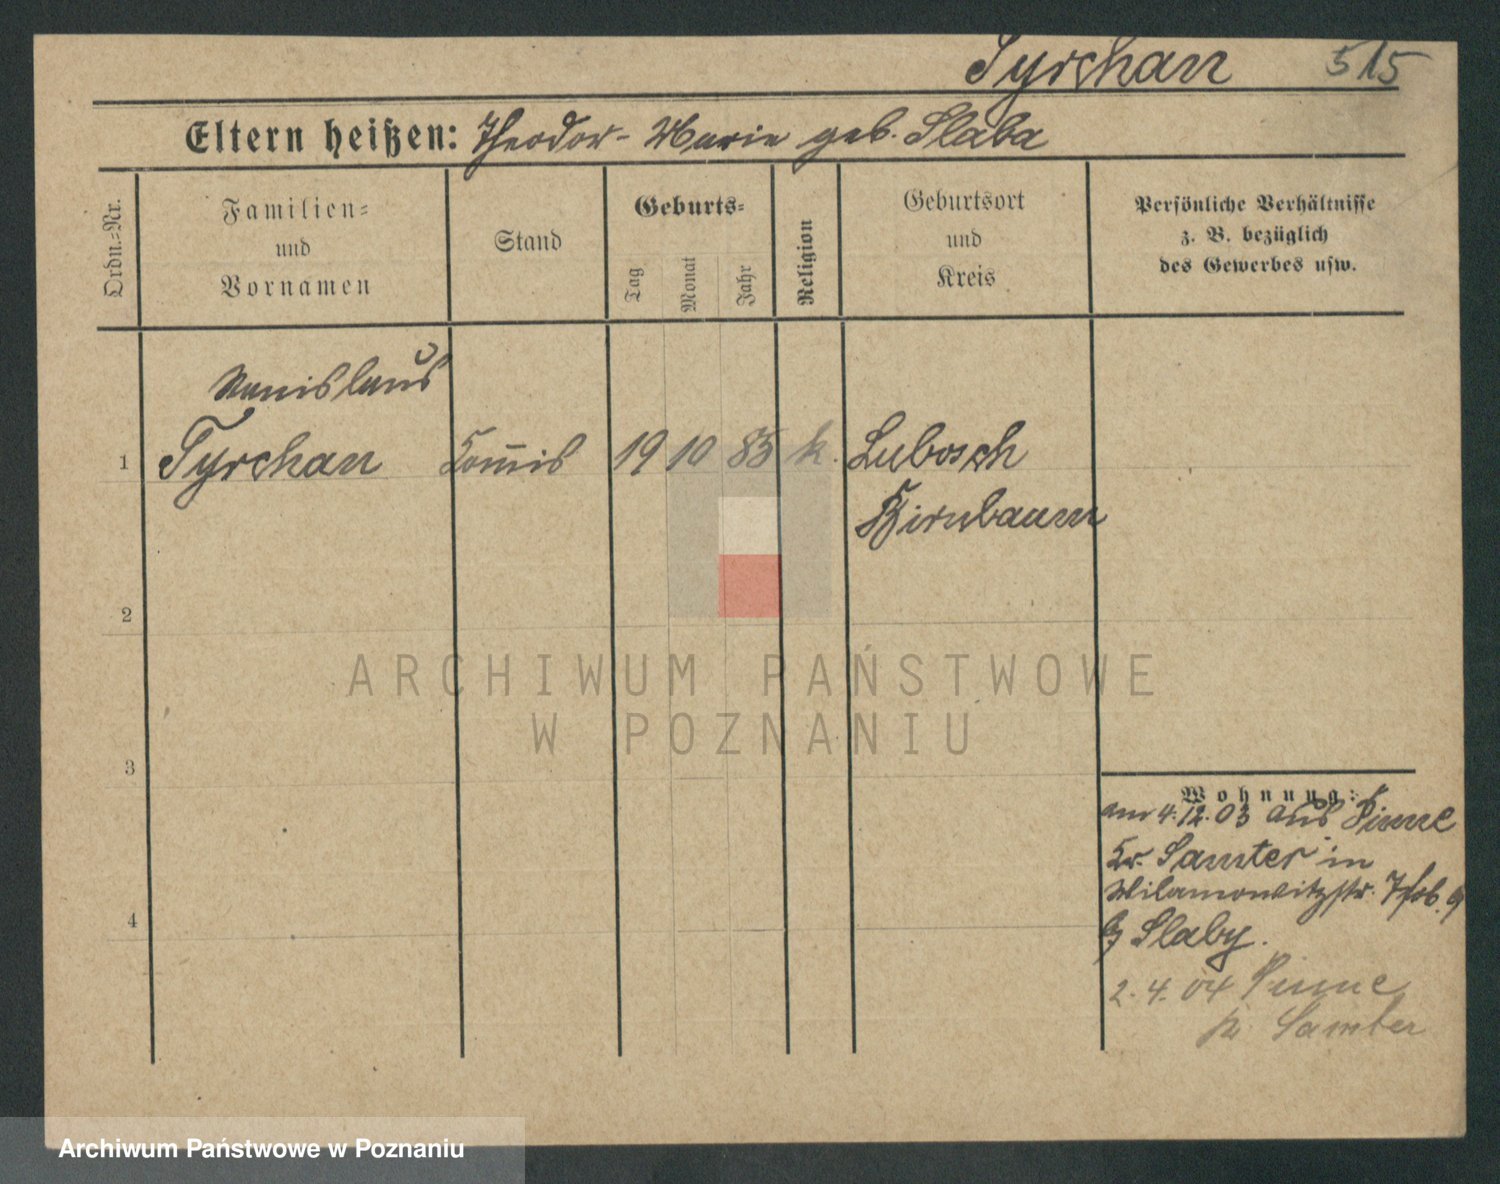 Tyrchan 515
Eltern heißen: Theodor - Marie geb. Slaba
Ordn.-Nr.
Familien-
und
Vornamen
Stand
Geburts-
Tag
Monat
Jahr
Religion
Geburtsort
und
Kreis
Persönliche Verhältnisse
z. B. bezüglich
des Gewerbes usw.
Stanislaus
1 Tyrchan Com̄is 19 10 85 k. Lubosch
Birnbaum
2
ARCHIWUM PAŃSTWOWE
W POZNANIU
3
Wohnung:
am 4.12.03 aus Pinne
Kr. Samter in
Wilamowitzstr. 9
b/ Slaby.
4
2.4.04 Pinne
Samter
Archiwum Państwowe w Poznaniu